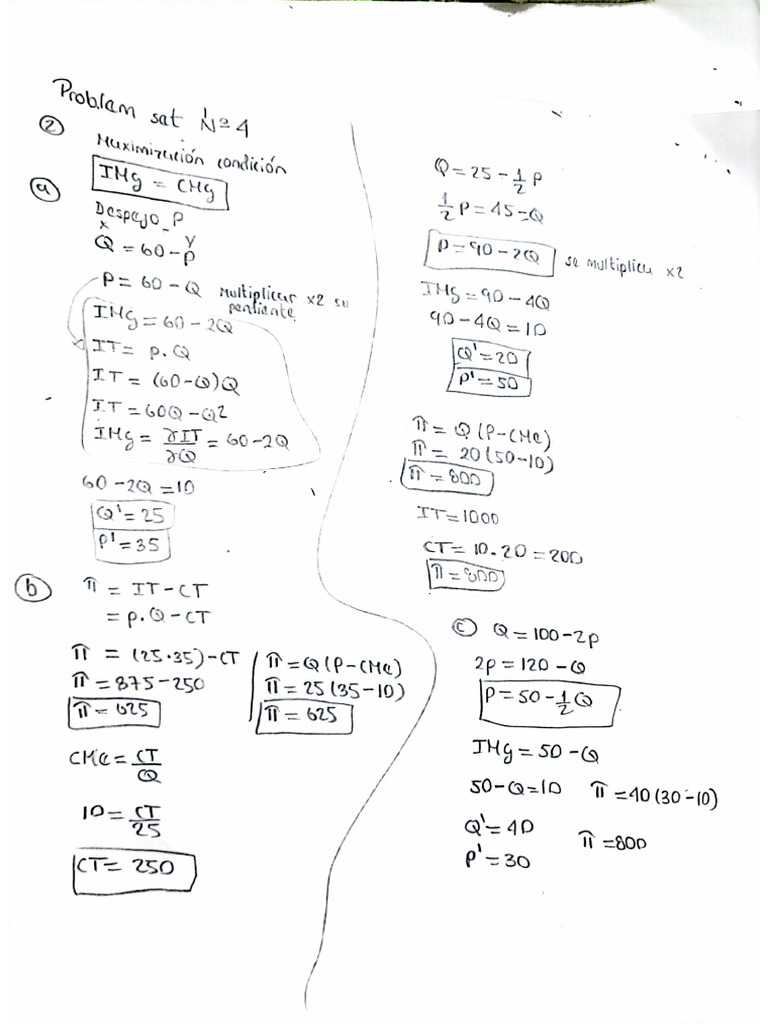 Problem sat Nº4
② Maximización condición
IMg = CMg
ⓐ Despejo P
x y
Q = 60 - P
P = 60 - Q Multiplicar x2 su pentiente
IMg = 60 - 2Q
IT = P.Q
IT = (60-Q)Q
IT = 60Q - Q²
IMg = ∂IT/∂Q = 60 - 2Q
60 - 2Q = 10
Q' = 25
P' = 35
ⓑ π = IT - CT
= P.Q - CT
π = (25.35) - CT
π = 875 - 250
π = 625
π = Q(P-CMe)
π = 25(35-10)
π = 625
CMe = CT/Q
10 = CT/25
CT = 250
Q = 25 - 1/2 P
1/2 P = 45 = Q
P = 90 - 2Q se multiplica x2
IMg = 90 - 4Q
90 - 4Q = 10
Q' = 20
P' = 50
π = Q(P-CMe)
π = 20(50-10)
π = 800
IT = 1000
CT = 10.20 = 200
π = 800
ⓒ Q = 100 - 2P
2P = 120 - Q
P = 50 - 1/2 Q
IMg = 50 - Q
50 - Q = 10 π = 40(30-10)
Q' = 40
π = 800
P' = 30